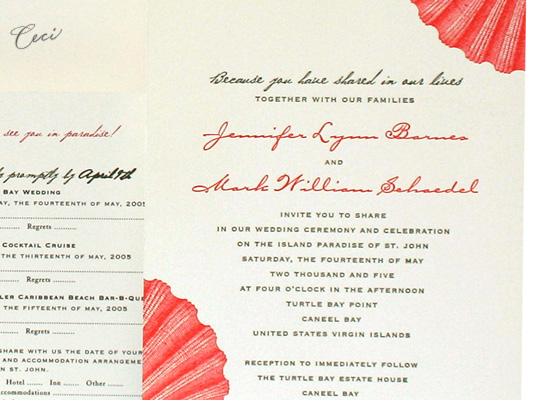 Ceci
see you in paradise!
promptly by April 8th
Bay Wedding
the fourteenth of May, 2005
Regrets
Cocktail Cruise
the thirteenth of May, 2005
Regrets
Caribbean Beach Bar-B-Que
the fifteenth of May, 2005
Regrets
share with us the date of your
and accommodation arrangeme
in St. John.
Hotel ....... Inn ....... Other .......
Because you have shared in our lives
together with our families
Jennifer Lynn Barnes
and
Mark William Schaedel
invite you to share
in our wedding ceremony and celebration
on the island paradise of St. John
Saturday, the fourteenth of May
two thousand and five
at four o'clock in the afternoon
Turtle Bay Point
Caneel Bay
United States Virgin Islands
Reception to immediately follow
the Turtle Bay Estate House
Caneel Bay